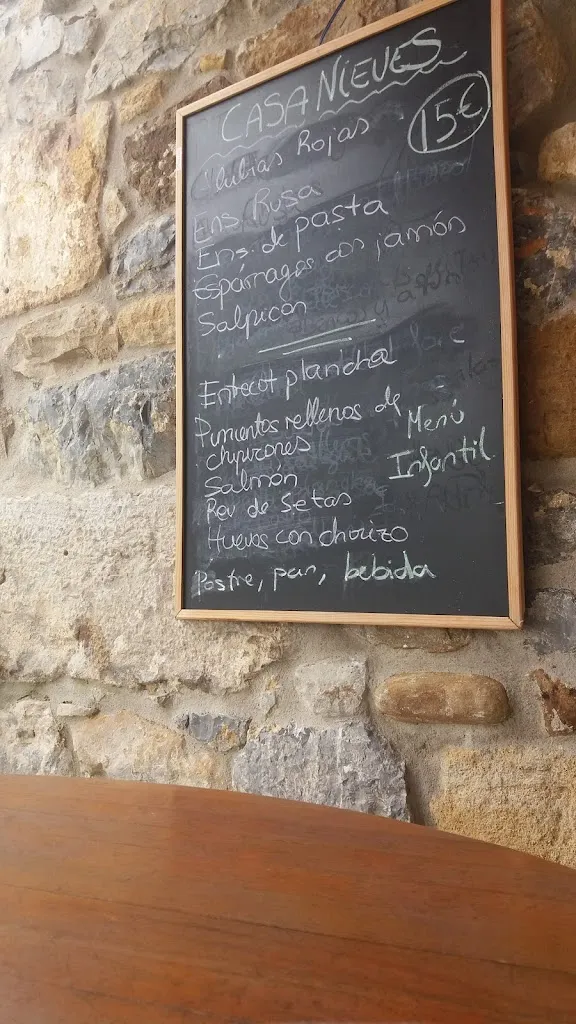 CASA NIEVES
15€
Alubias Rojas
Ens. Rusa
Ens. de pasta
Espárragos con jamón
Salpicón
Entrecot plancha
Pimientos rellenos de
chipirones
Salmón
Rev de Setas
Huevos con chorizo
Menú
Infantil
Postre, pan, bebida